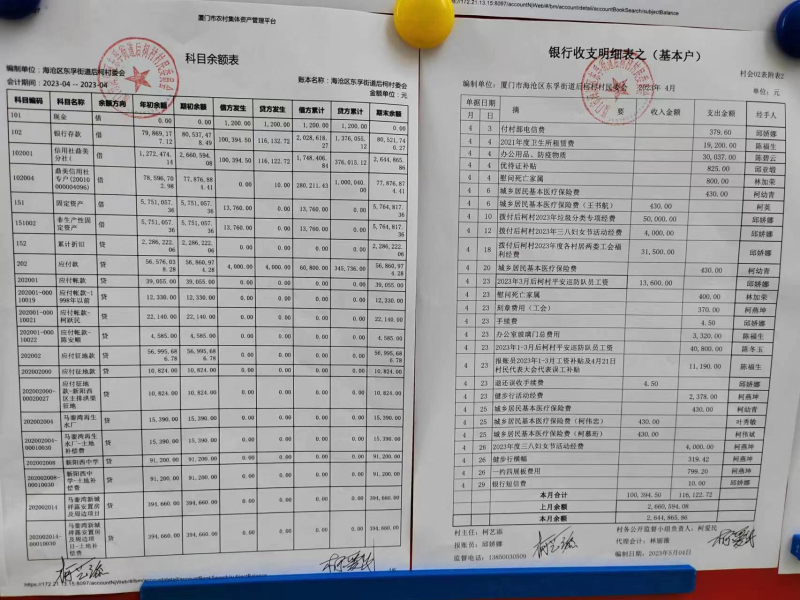 厦门市农村集体资产管理平台
科目余额表
编制单位：海沧区东孚街道后柯村委会
会计期间：2023-04 — 2023-04
账本名称：海沧区东孚街道后柯村委会
金额单位：元
科目编码 科目名称 余额方向 年初余额 期初余额 借方发生 贷方发生 借方累计 贷方累计 期末余额
101 现金 借 0.00 0.00 1,200.00 1,200.00 1,200.00 1,200.00 0.00
102 银行存款 借 79,869,177.12 80,537,478.49 100,394.50 116,132.72
100201 信用社鼎美分社 借 1,272,474.14 2,660,594.08 100,394.50 116,122.72 1,748,406.84 376,015.12 2,644,865.86
102004 鼎美信用社专户(20010000004096) 借 78,596,702.98 77,876,884.41 0.00 10.00 280,211.43 1,000,040.00 77,876,874.41
151 固定资产 借 5,751,057.36 5,751,057.36 13,760.00 0.00 13,760.00 0.00 5,764,817.36
151002 非生产性固定资产 借 5,751,057.36 5,751,057.36 13,760.00 0.00 13,760.00 0.00 5,764,817.36
152 累计折旧 贷 2,286,222.06 2,286,222.06 0.00 0.00 0.00 0.00 2,286,222.06
202 应付款 贷 56,576,038.28 56,860,974.28 4,000.00 4,000.00 60,800.00 345,736.00 56,860,974.28
202001 应付帐款 贷 39,055.00 39,055.00 0.00 0.00 0.00 0.00 39,055.00
202001-00010019 应付帐款-1998年以前 贷 12,330.00 12,330.00 0.00 0.00 0.00 0.00 12,330.00
202001-00010021 应付帐款-柯跃民 贷 22,140.00 22,140.00 0.00 0.00 0.00 0.00 22,140.00
202001-00010022 应付帐款-陈安顺 贷 4,585.00 4,585.00 0.00 0.00 0.00 0.00 4,585.00
202002 应付征地款 贷 56,995,686.78 56,995,686.78 0.00 0.00 0.00 0.00 56,995,686.78
202002000 应付征地款 贷 10,824.00 10,824.00 0.00 0.00 0.00 0.00 10,824.00
202002000-00020027 应付征地款-新阳西区主排洪渠征地 贷 10,824.00 10,824.00 0.00 0.00 0.00 0.00 10,824.00
202002004 马銮湾再生水厂 贷 15,390.00 15,390.00 0.00 0.00 0.00 0.00 15,390.00
202002004-00010030 马銮湾再生水厂-土地补偿费 贷 15,390.00 15,390.00 0.00 0.00 0.00 0.00 15,390.00
202002008 新阳西中学 贷 91,200.00 91,200.00 0.00 0.00 0.00 0.00 91,200.00
202002008-00010030 新阳西中学-土地补偿费 贷 91,200.00 91,200.00 0.00 0.00 0.00 0.00 91,200.00
202002014 马銮湾新城祥露安置房及周边项目 贷 394,660.00 394,660.00 0.00 0.00 0.00 0.00 394,660.00
202002014-00010030 马銮湾新城祥露安置房及周边项目-土地补偿费 贷 394,660.00 394,660.00 0.00 0.00 0.00 0.00 394,660.00
银行收支明细表之（基本户）
村会02表附表2
编制单位：厦门市海沧区东孚街道后柯村村民委员会 2023年 4月
单位：元
单据日期 摘 要 收入金额 支出金额 经手人
月 日
4 3 付村部电信费 379.60 邱娇娜
4 4 2021年度卫生所租赁费 19,200.00 陈福生
4 4 办公用品、防疫物质 30,037.00 陈碧云
4 4 优待证补贴 825.00 邱亚瑠
4 4 慰问死亡家属 800.00 林加荣
4 6 城乡居民基本医疗保险费 430.00 柯幼青
4 6 城乡居民基本医疗保险费（王书航） 430.00 柯英
4 10 拨付后柯村2023年垃圾分类专项经费 50,000.00 邱娇娜
4 12 拨付后柯村2023年三八妇女节活动经费 4,000.00 邱娇娜
4 18 拨付后柯村2023年度各村居两委工会福利经费 31,500.00 邱娇娜
4 20 城乡居民基本医疗保险费 430.00 柯幼青
4 23 2023年3月后柯村平安巡防队员工资 13,600.00 邱娇娜
4 23 慰问死亡家属 400.00 林加荣
4 23 刻章费用（工会） 370.00 柯燕坤
4 23 手续费 4.50 邱娇娜
4 23 办公室玻璃门总费用 3,320.00 陈福生
4 23 2023年1-3月后柯村平安巡防队员工资 40,800.00 陈冬玉
4 23 报账员2023年1-3月工资补贴及4月21日村民代表大会代表误工补贴 11,190.00 陈福生
4 23 退还误收手续费 4.50 邱娇娜
4 23 健步行活动经费 2,378.00 柯燕坤
4 25 城乡居民基本医疗保险费 430.00 柯幼青
4 25 城乡居民基本医疗保险费（柯伟忠） 430.00 叶秀敏
4 25 城乡居民基本医疗保险费（柯慕珩） 430.00 柯伟斌
4 26 2023年度三八妇女节活动经费 4,000.00 柯燕坤
4 26 健步行横幅 319.42 柯燕坤
4 26 一约四展板费用 798.20 柯燕坤
4 29 银行短信费 10.00 邱娇娜
本月合计 100,394.50 116,122.72
上月余额 2,660,594.08
本月余额 2,644,865.86
村主任：柯艺添
村务公开监督小组负责人：柯爱民
报账员：邱娇娜
代理会计：林丽薇
监督电话：13850030509
编制日期：2023年5月04日